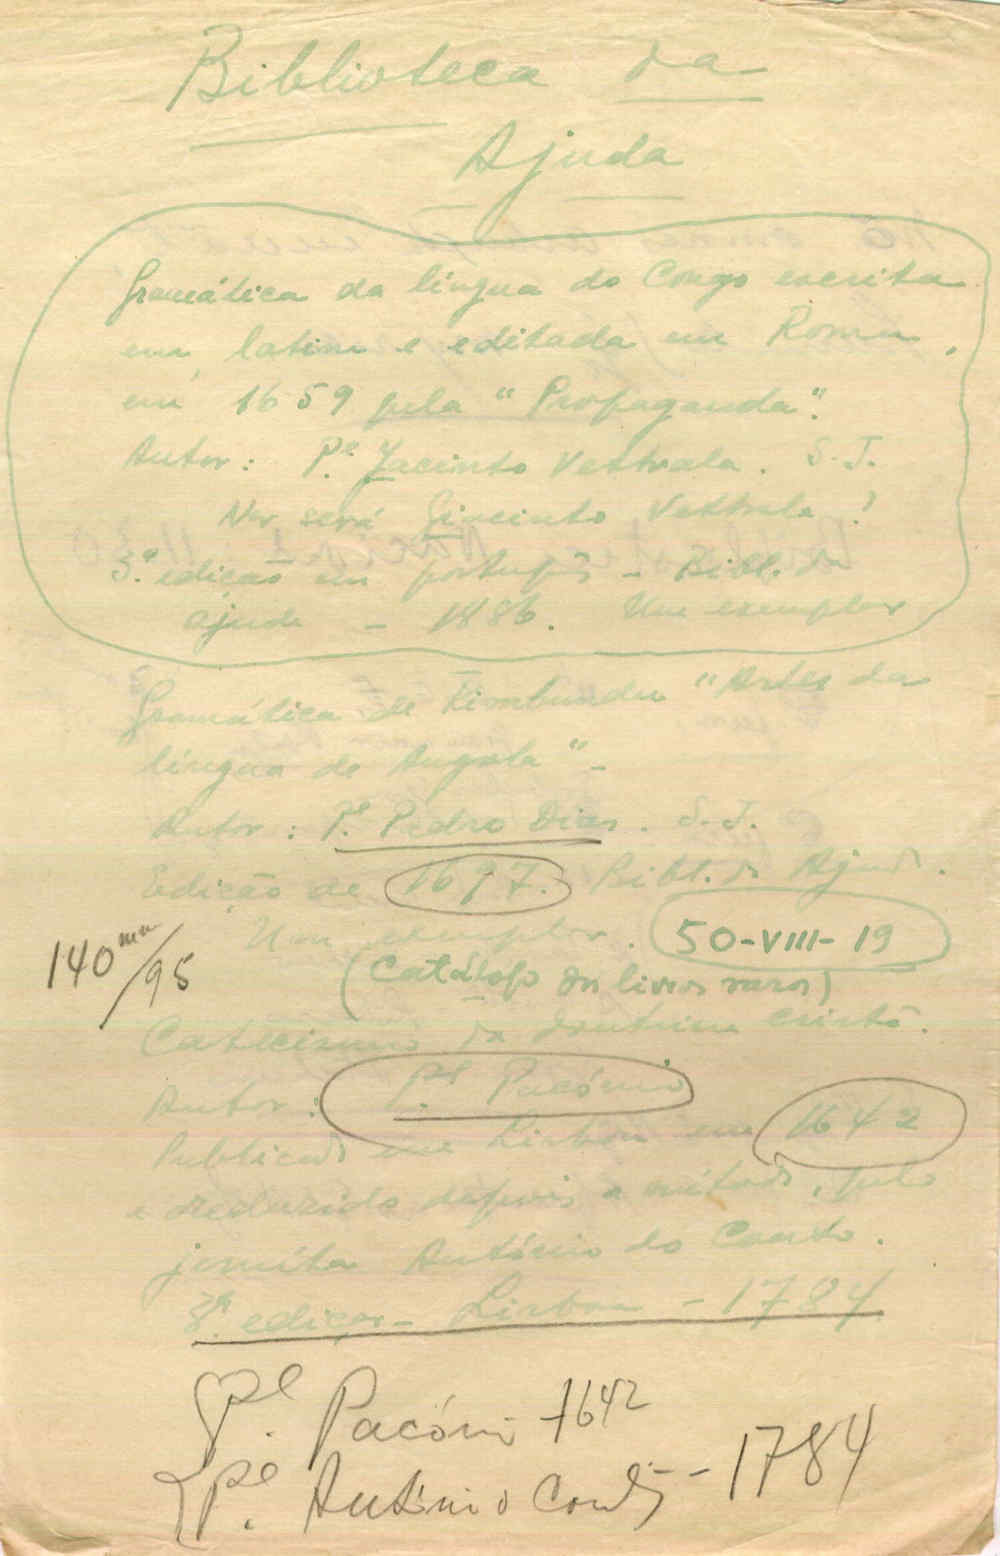 Biblioteca da
Ajuda
Gramática da língua do Congo escrita
em latim e editada em Roma,
em 1659 pela "Propaganda".
Autor: P.e Jacinto Vettrala. S.J.
Não será Giacinto Vettrala?
3.ª edição em português - Bibl. da
Ajuda - 1886. Um exemplar
Gramática de Kimbundu "Artes da
língua de Angola" -
Autor: P.e Pedro Dias. S.J.
Edição de 1697. Bibl. da Ajuda.
Um exemplar. 50-VIII-19
140 mm/95
(Catálogo dos livros raros)
Catecismo da doutrina cristã.
Autor: P.e Pacónio
Publicado em Lisboa em 1642
e reduzido depois a método, pelo
jesuíta António do Couto.
3.ª edição - Lisboa - 1784
P.e Pacóni 1642
P.e António Couto - 1784